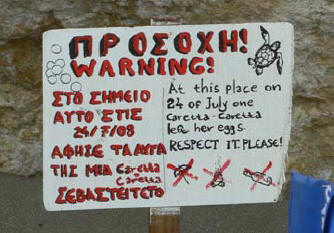 ΠΡΟΣΟΧΗ!
WARNING!
ΣΤΟ ΣΗΜΕΙΟ
ΑΥΤΟ ΣΤΙΣ
24/7/08
ΑΦΗΣΕ ΤΑ ΑΥΓΑ
ΤΗΣ ΜΙΑ Caretta
Caretta
ΣΕΒΑΣΤΕΙΤΕ ΤΟ
At this place on
24 of July one
Caretta-Caretta
left her eggs.
RESPECT IT PLEASE!